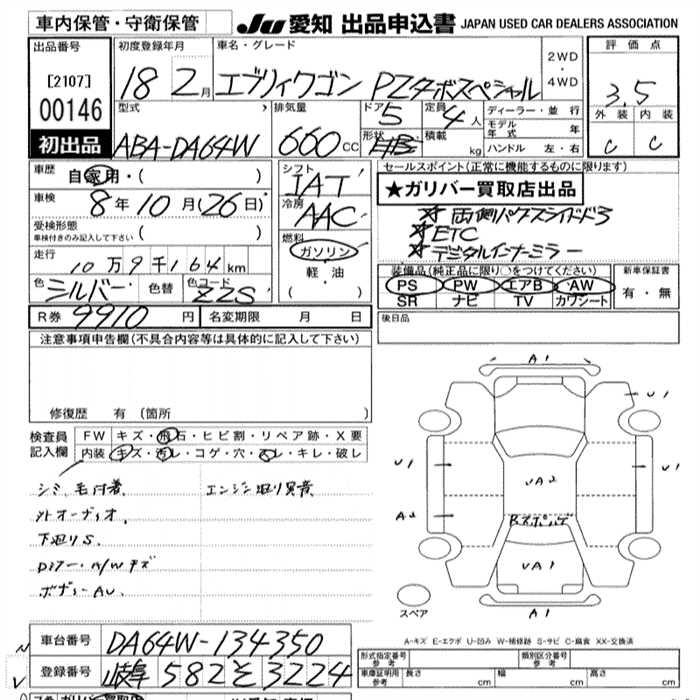 車内保管・守衛保管
JU 愛知 出品申込書 JAPAN USED CAR DEALERS ASSOCIATION
出品番号 初度登録年月 車名・グレード 評価点
[2107] 18 2月 エブリィワゴン PZターボスペシャル 2WD・4WD 3.5
00146
初出品
型式 排気量 ドア 定員 ディーラー・並行 外装 内装
ABA-DA64W 660cc 5 4人 モデル年式 年 C C
形状 積載 kg ハンドル 左・右
車歴 自家用・( ) シフト セールスポイント(正常に機能するものに限ります)
IAT ★ガリバー買取店出品
車検 8年10月(26日) 冷房 AAC
両側パワースライドドア
受検形態 車検付きのみ記入して下さい ( ) 燃料 ETC
ガソリン デジタルインナーミラー
走行 10万9千164km 軽油 装備品(純正品に限り○をつけてください) 新車保証書
色 シルバー 色替 色コード ZZS ( ) PS PW エアB AW 有・無
SR ナビ TV カワシート
R券 9910円 名変期限 月 日 後日品
注意事項申告欄(不具合内容等は具体的に記入して下さい)
修復歴 有(箇所 )
検査員記入欄 FW キズ・飛石・ヒビ割・リペア跡・X要
内装 キズ・汚レ・コゲ・穴・スレ・キレ・破レ
シミ、毛付着 エンジン廻り異音
外オーディオ
下廻りS
ボディーAU
A1
U1
U1
U1
UA2
A2
UA1
スペア
A1
A-キズ E-エクボ U-凹み W-補修跡 S-サビ C-腐食 XX-交換済
車台番号 DA64W-134350
登録番号 岐阜 582 そ 3224
形式指定番号 参考 類別区分番号 参考
車庫証明用 参考 長さ cm 幅 cm 高さ cm